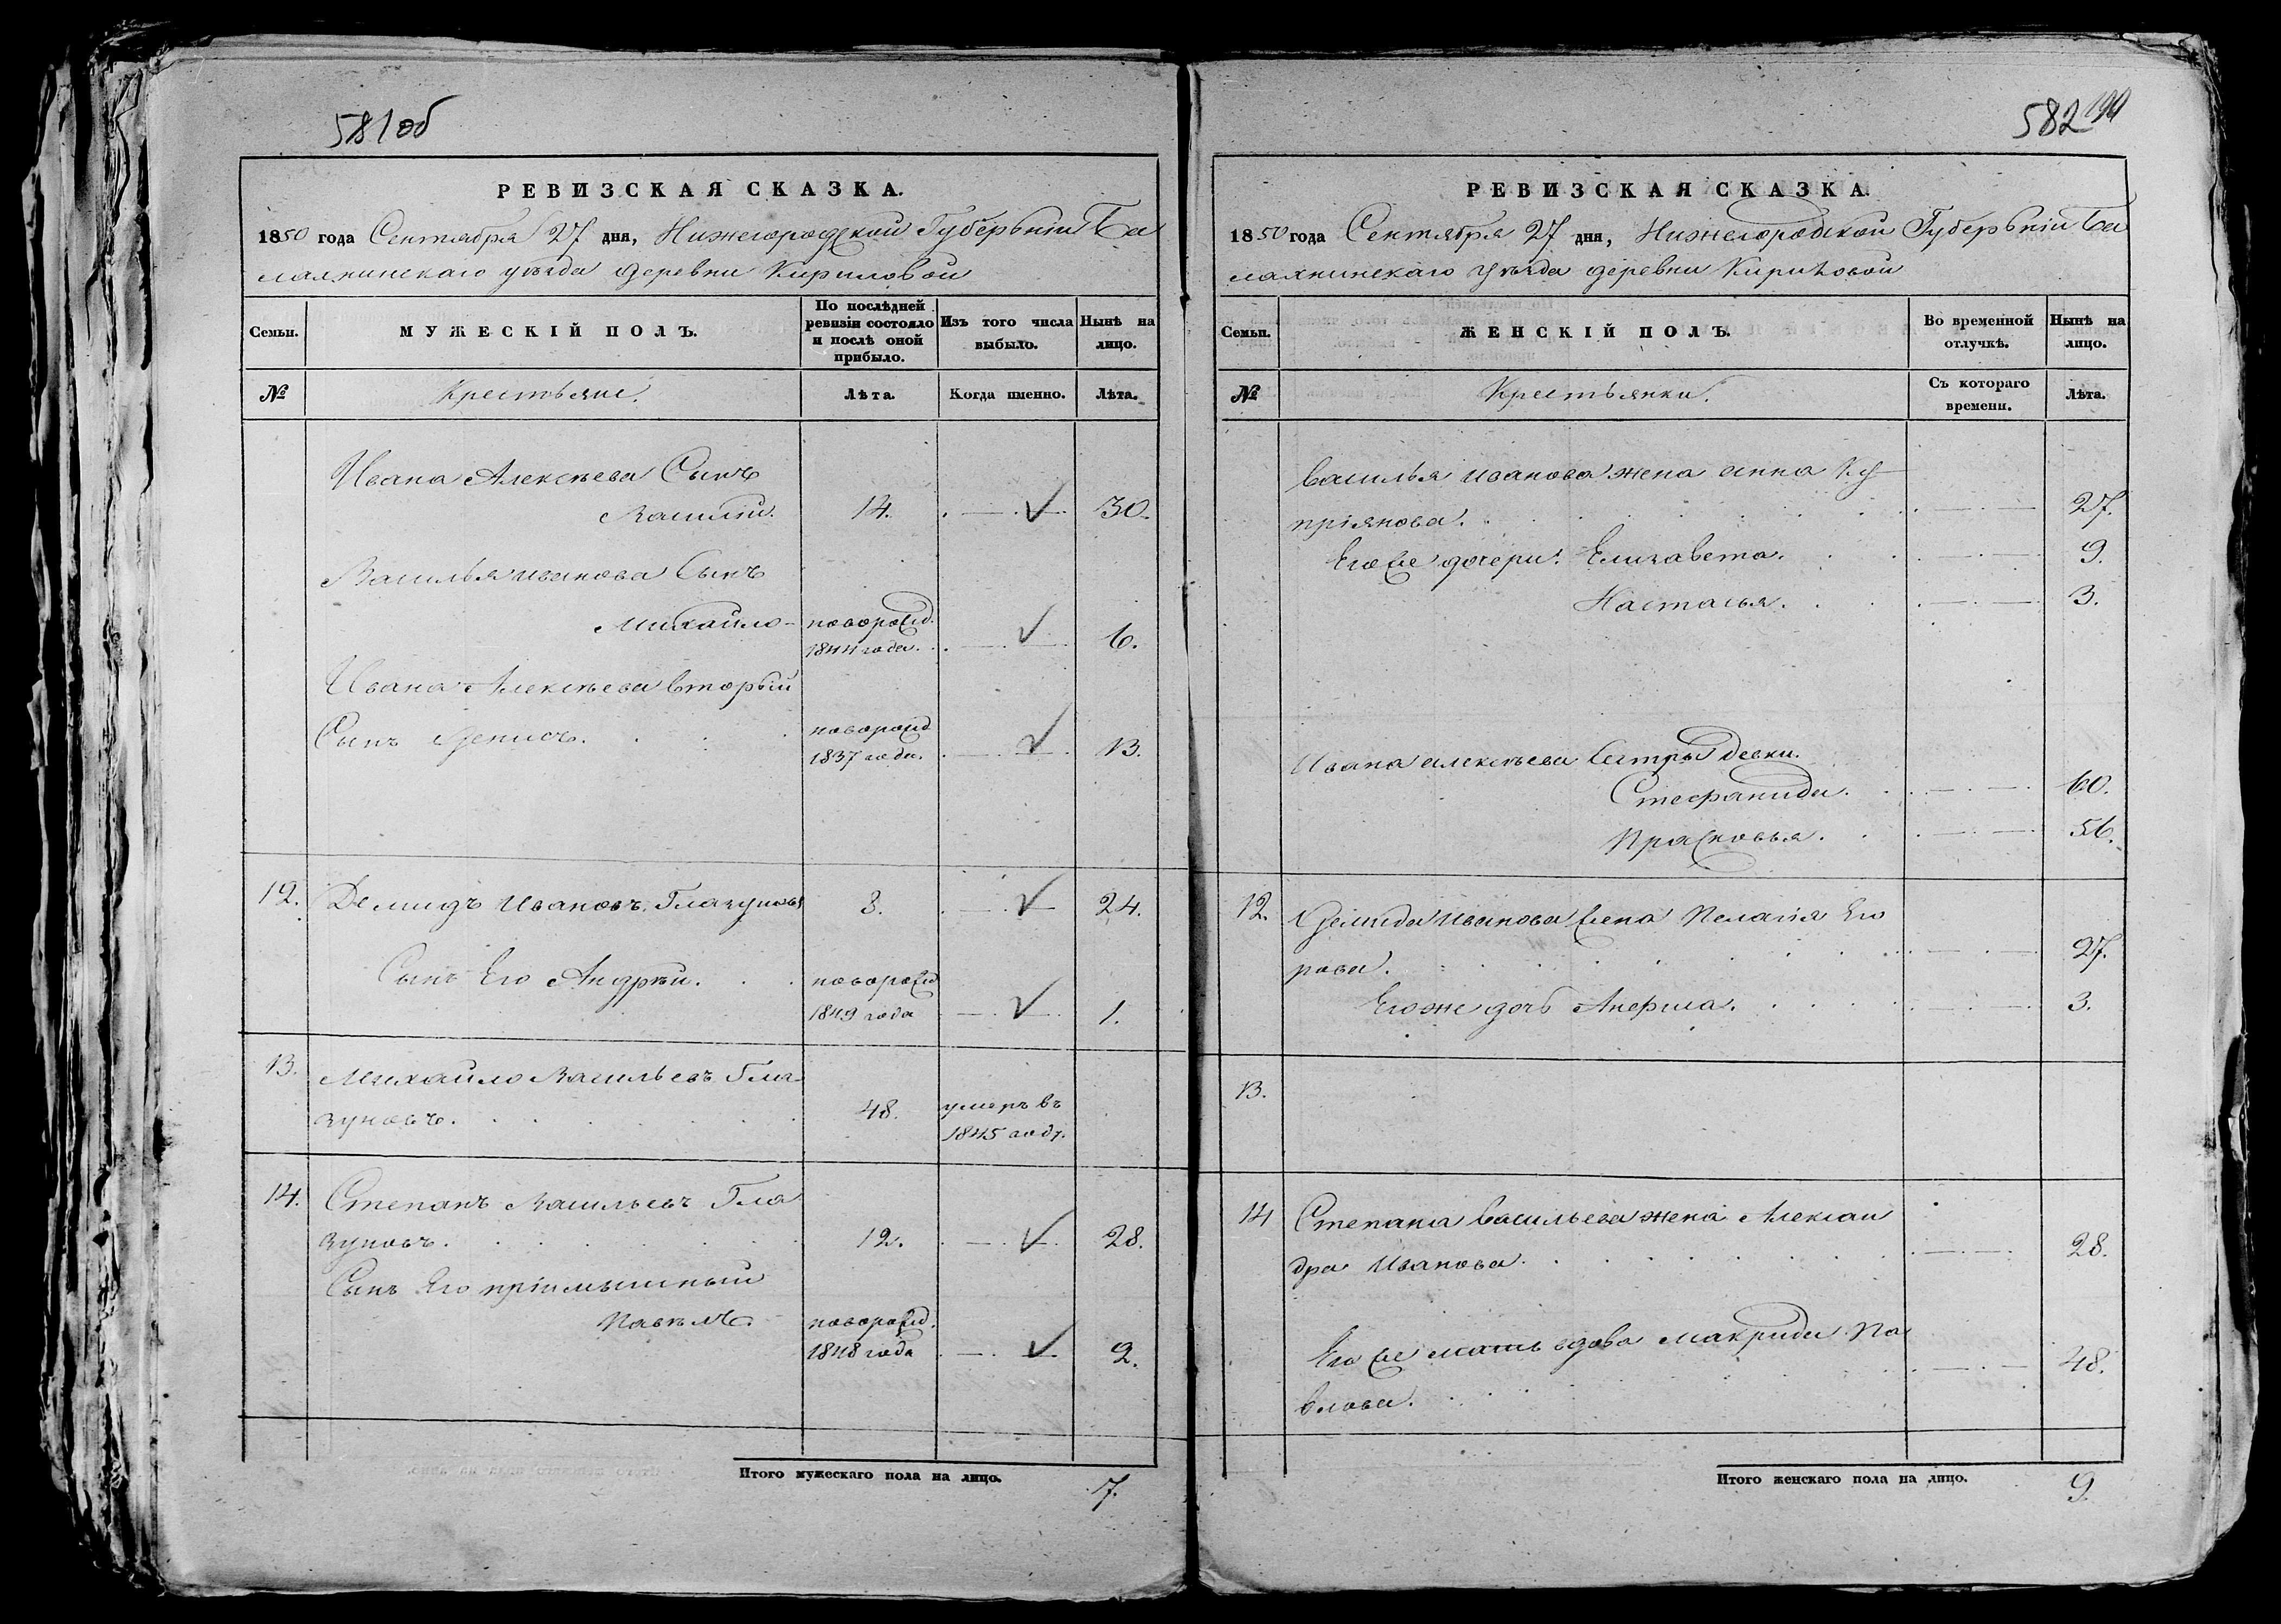 581об
РЕВИЗСКАЯ СКАЗКА.
1850 года Сентября 27 дня, Нижегородской Губернiи Ба
лахнинскаго уѣзда деревни Кириловой
Семьи.
МУЖЕСКIЙ ПОЛЪ.
По послѣдней ревизiи состояло и послѣ оной прибыло.
Изъ того числа выбыло.
Нынѣ на лицо.
№
Крестьяне.
Лѣта.
Когда именно.
Лѣта.
Ивана Алексѣева Сынъ
Василiй. 14. 30.
Василья иванова Сынъ
Михайло новорожд.
1844 года. 6.
Ивана Алексѣева вторый
Сынъ Денисъ. новорожд
1837 года. 13.
12. Демидъ Ивановъ Глазуновъ 8. 24.
Сынъ Его Андрѣй. новорожд
1849 года 1.
13. Михайло Васильевъ Гла
зуновъ. 48. умеръ въ
1845 году.
14. Степанъ Васильевъ Гла
зуновъ. 12. 28.
Сынъ Его прiимышный
Павелъ. новорожд.
1848 года 2.
Итого мужескаго пола на лицо. 7.
582
РЕВИЗСКАЯ СКАЗКА.
1850 года Сентября 27 дня, Нижегородской Губернiи Ба
лахнинскаго Уѣзда деревни Кириловой
Семьи.
ЖЕНСКIЙ ПОЛЪ.
Во временной отлучкѣ.
Нынѣ на лицо.
№
Крестьянки.
Съ котораго времени.
Лѣта.
Василья иванова жена анна Ку
прiянова. 27.
Егоже дочери: Елизавета. 9.
Настасья. 3.
Ивана алексѣева Сестры девки.
Стефанида. 60.
Прасковья. 56.
12. Демида Иванова жена Пелагiя Его
рова. 27.
Егоже дочь Анфиса. 3.
13.
14 Степана Васильева жена Алексан
дра Иванова. 28.
Егоже мать вдова Макрида Па
влова. 48.
Итого женскаго пола на лицо. 9.